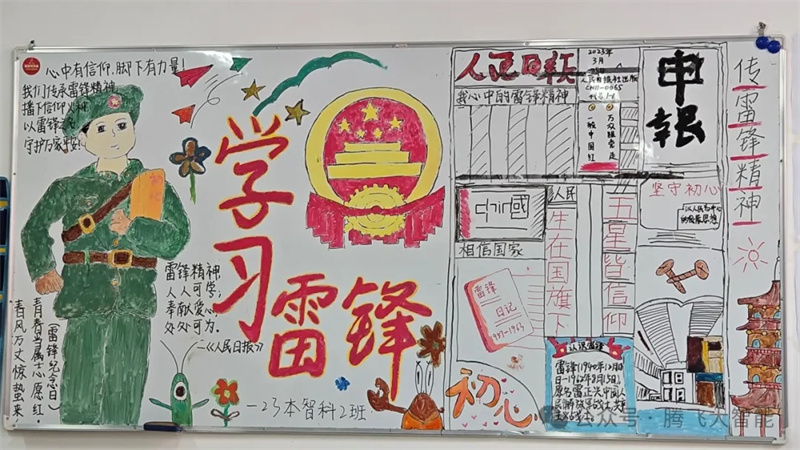 心中有信仰,脚下有力量!
我们传承雷锋精神
播下信仰火种
以雷锋
守护万家平安!
学习
雷锋
雷锋精神
人人可学;
奉献爱心,
处处可为。
—《人民日报》
(雷锋纪念日)
青春当属士心愿红,
春风万丈惊蛰来,
—23本智科2班
人民日报
2023年
3月
人民日报社出版
我心中的雷锋精神
申
报
传雷锋精神
坚守初心
中國
人民
相信国家
生在国旗下
五星皆信仰
雷锋
日记
初心
公众号·腾飞大智能